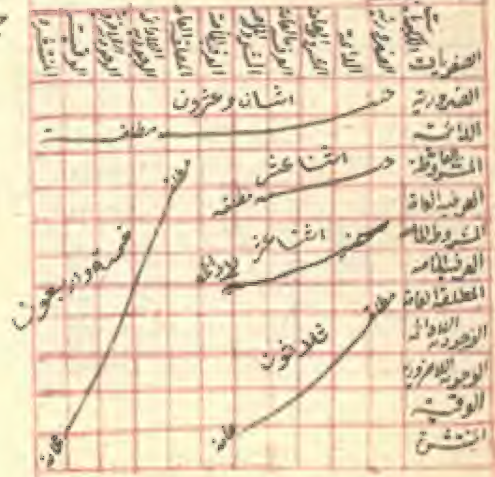 الضرورية
الدائمة
المشروطة العامة
العرفية العامة
المشروطة الخاصة
العرفية الخاصة
المطلقة العامة
الوجودية اللادائمة
الوجودية اللاضرورية
الوقتية
المنتشرة
الصغريات
الضرورية
الدائمة
المشروطة العامة
العرفية العامة
المشروطة الخاصة
العرفية الخاصة
المطلقة العامة
الوجودية اللادائمة
الوجودية اللاضرورية
الوقتية
المنتشرة
اثنان وعشرون
مطلقة
اثنا عشر
مطلقة
اثنا عشر
لادائمة
ثلاثون
مطلقة
عامة
خمسة واربعون
مطلقة
عامة